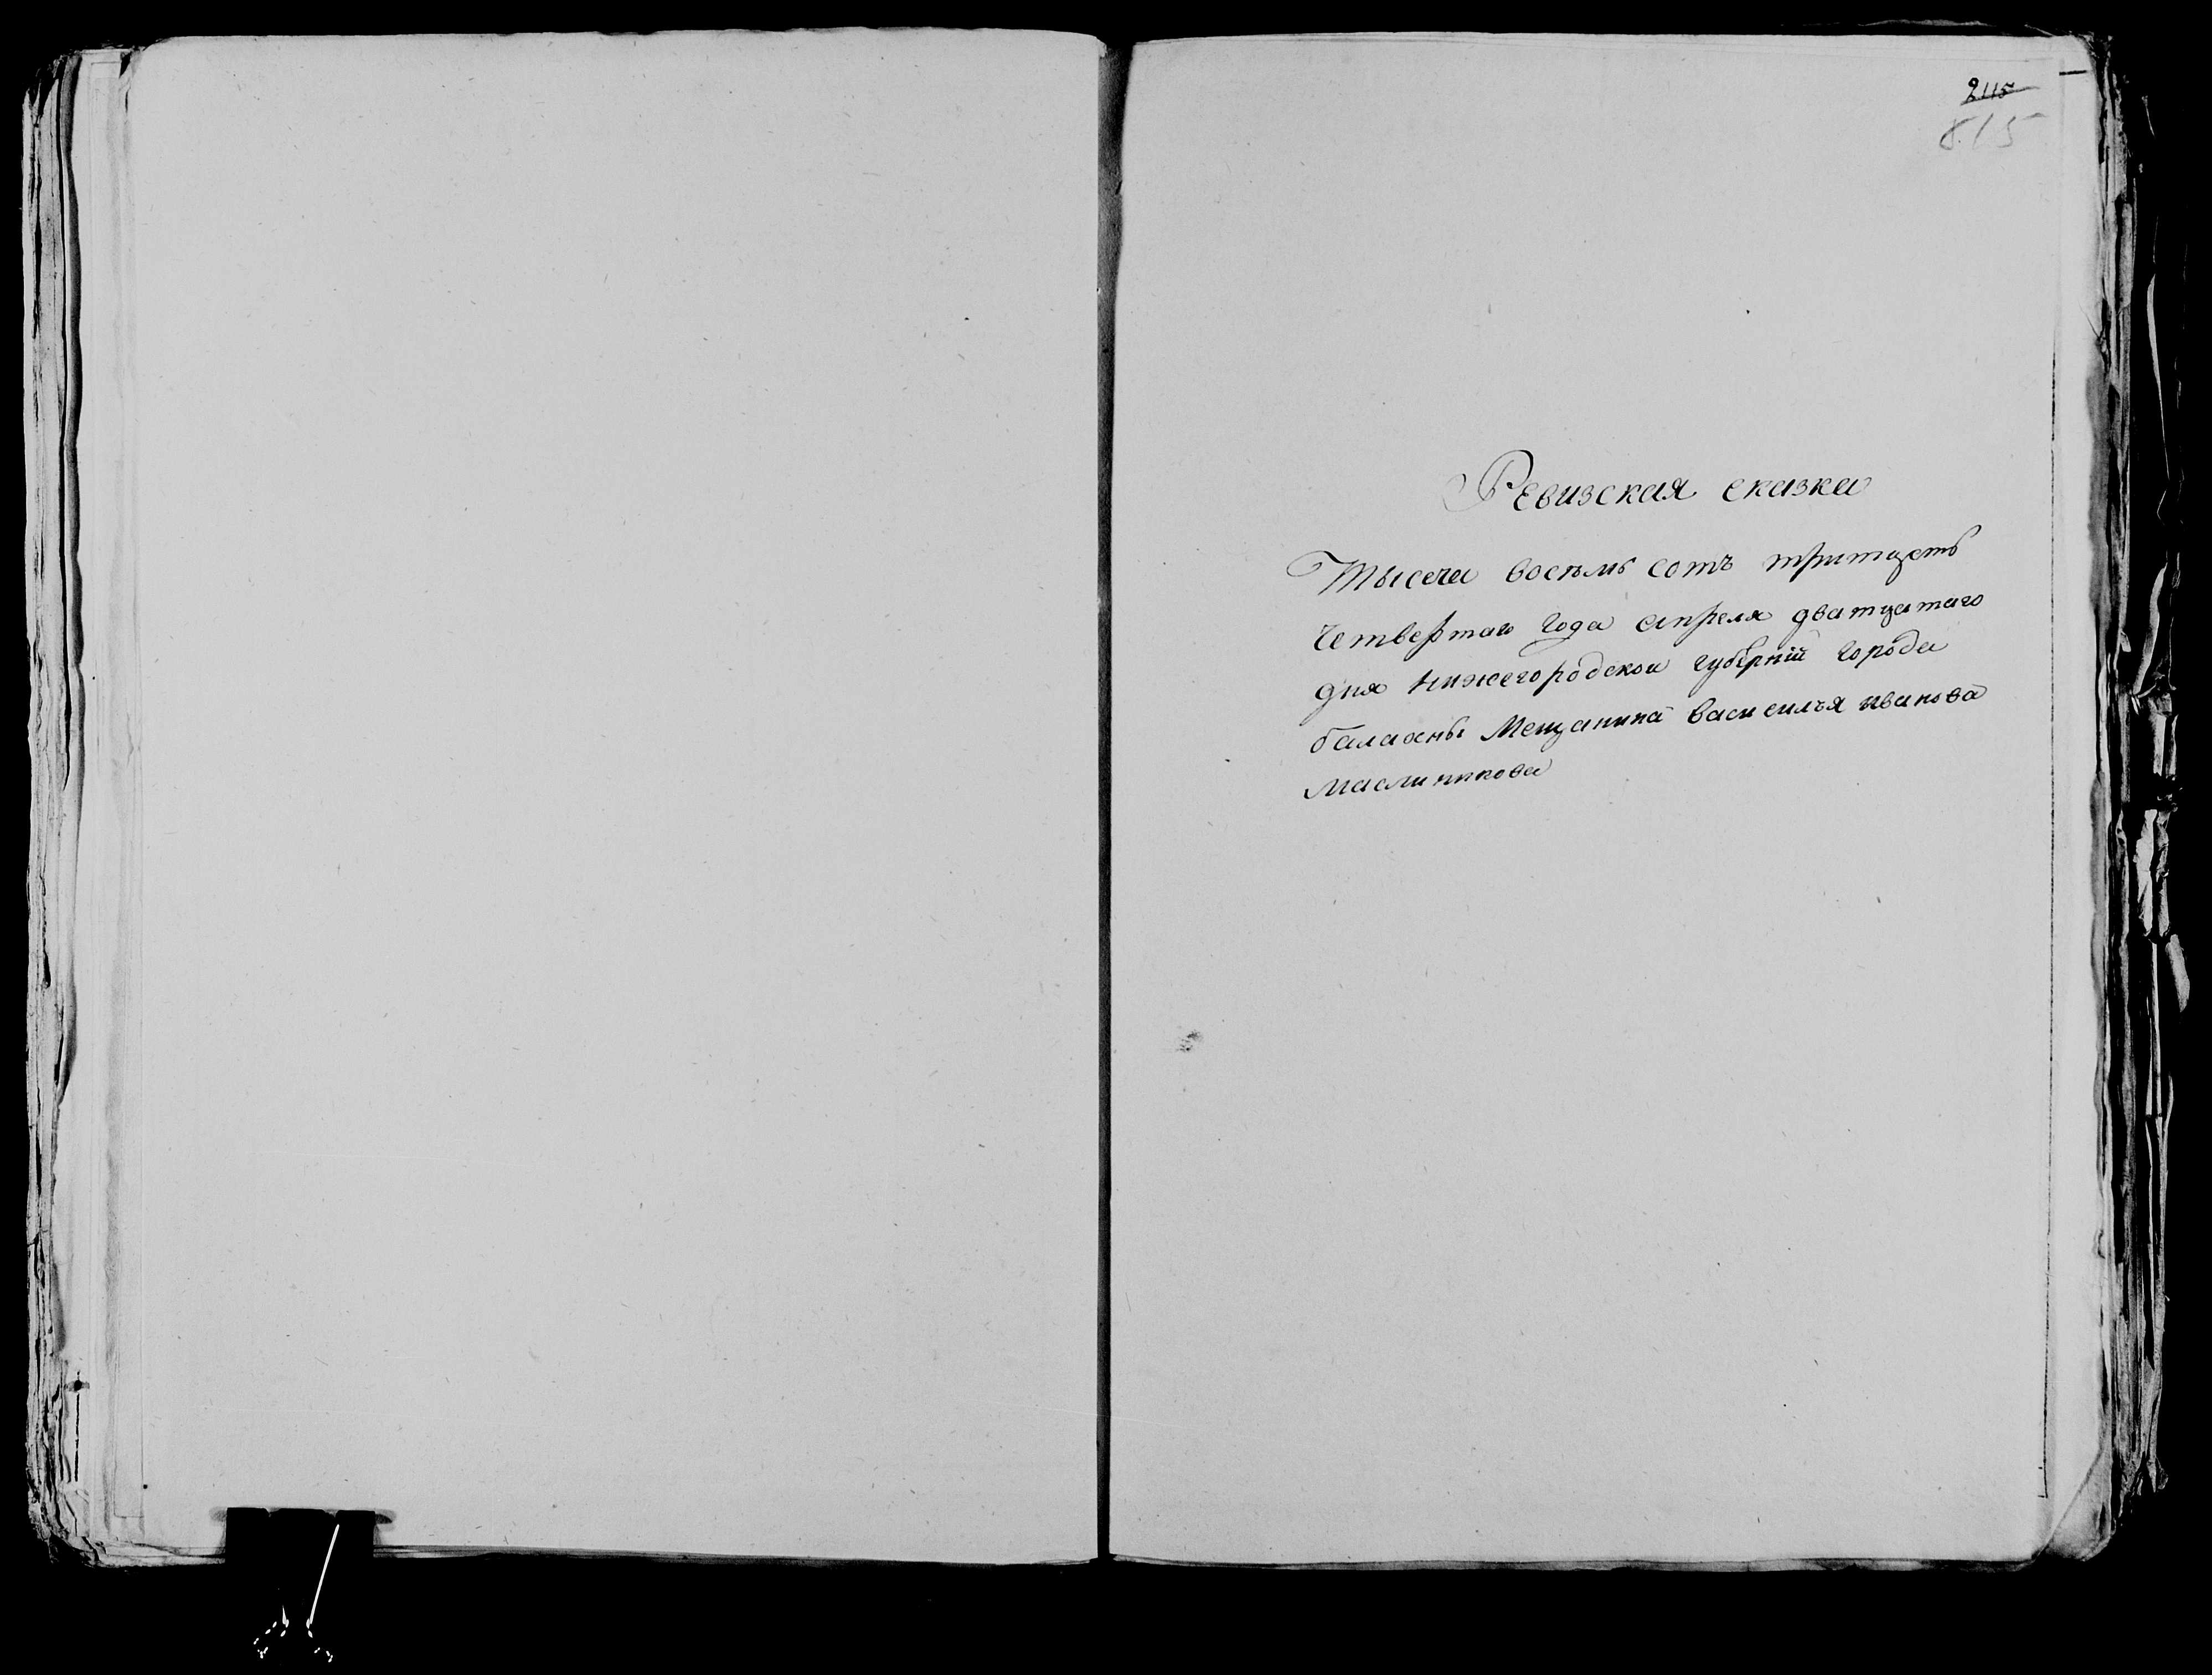 2115
815
Ревизская сказка
Тысеча восемь сотъ тритцеть
четвертаго года апреля дватцатаго
дня нижегородской губернiи города
балахны мещанина васисилья иванова
маслинникова